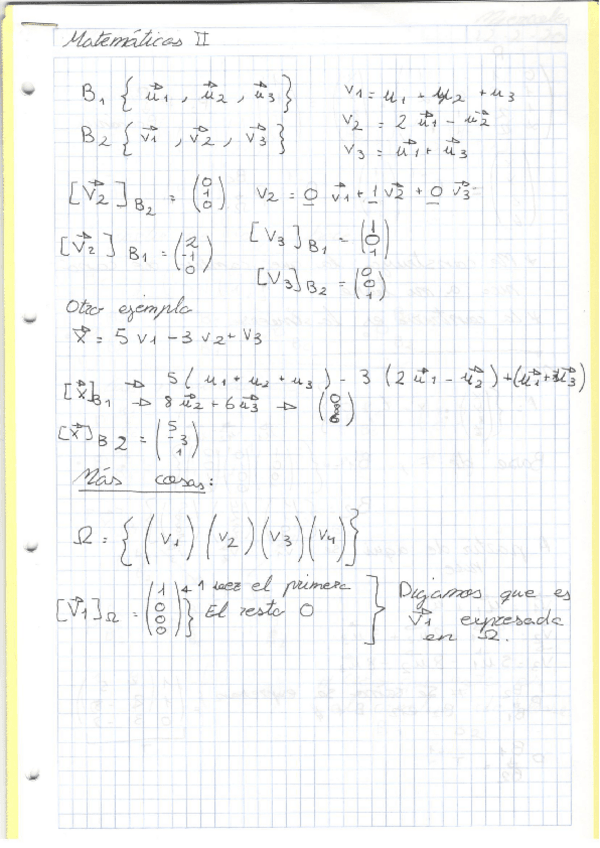 Matemáticas II
B₁ { u⃗₁ , u⃗₂ , u⃗₃ }    v₁ = u₁ + u₂ + u₃
B₂ { v⃗₁ , v⃗₂ , v⃗₃ }    v₂ = 2 u⃗₁ - u⃗₂
v₃ = u⃗₁ + u⃗₃
[v⃗₂]B₂ = (0 1 0)    v₂ = 0 v⃗₁ + 1 v⃗₂ + 0 v⃗₃
[v⃗₂]B₁ = (2 -1 0)    [v₃]B₁ = (1 0 1)
[v⃗₃]B₂ = (0 0 1)
Otro ejemplo
x⃗ = 5 v₁ - 3 v₂ + v₃
[x⃗]B₁ → 5 ( u₁ + u₂ + u₃ ) - 3 ( 2 u⃗₁ - u⃗₂ ) + (u⃗₁ + u⃗₃)
→ 8 u⃗₂ + 6 u⃗₃ → (0 8 6)
[x⃗]B2 = (5 -3 1)
Más cosas:
Ω = { (v₁) (v₂) (v₃) (v₄) }
[v⃗₁]Ω = (1 0 0 0) ← 1 vez el primero
El resto 0
Digamos que es
v⃗₁ expresada
en Ω.